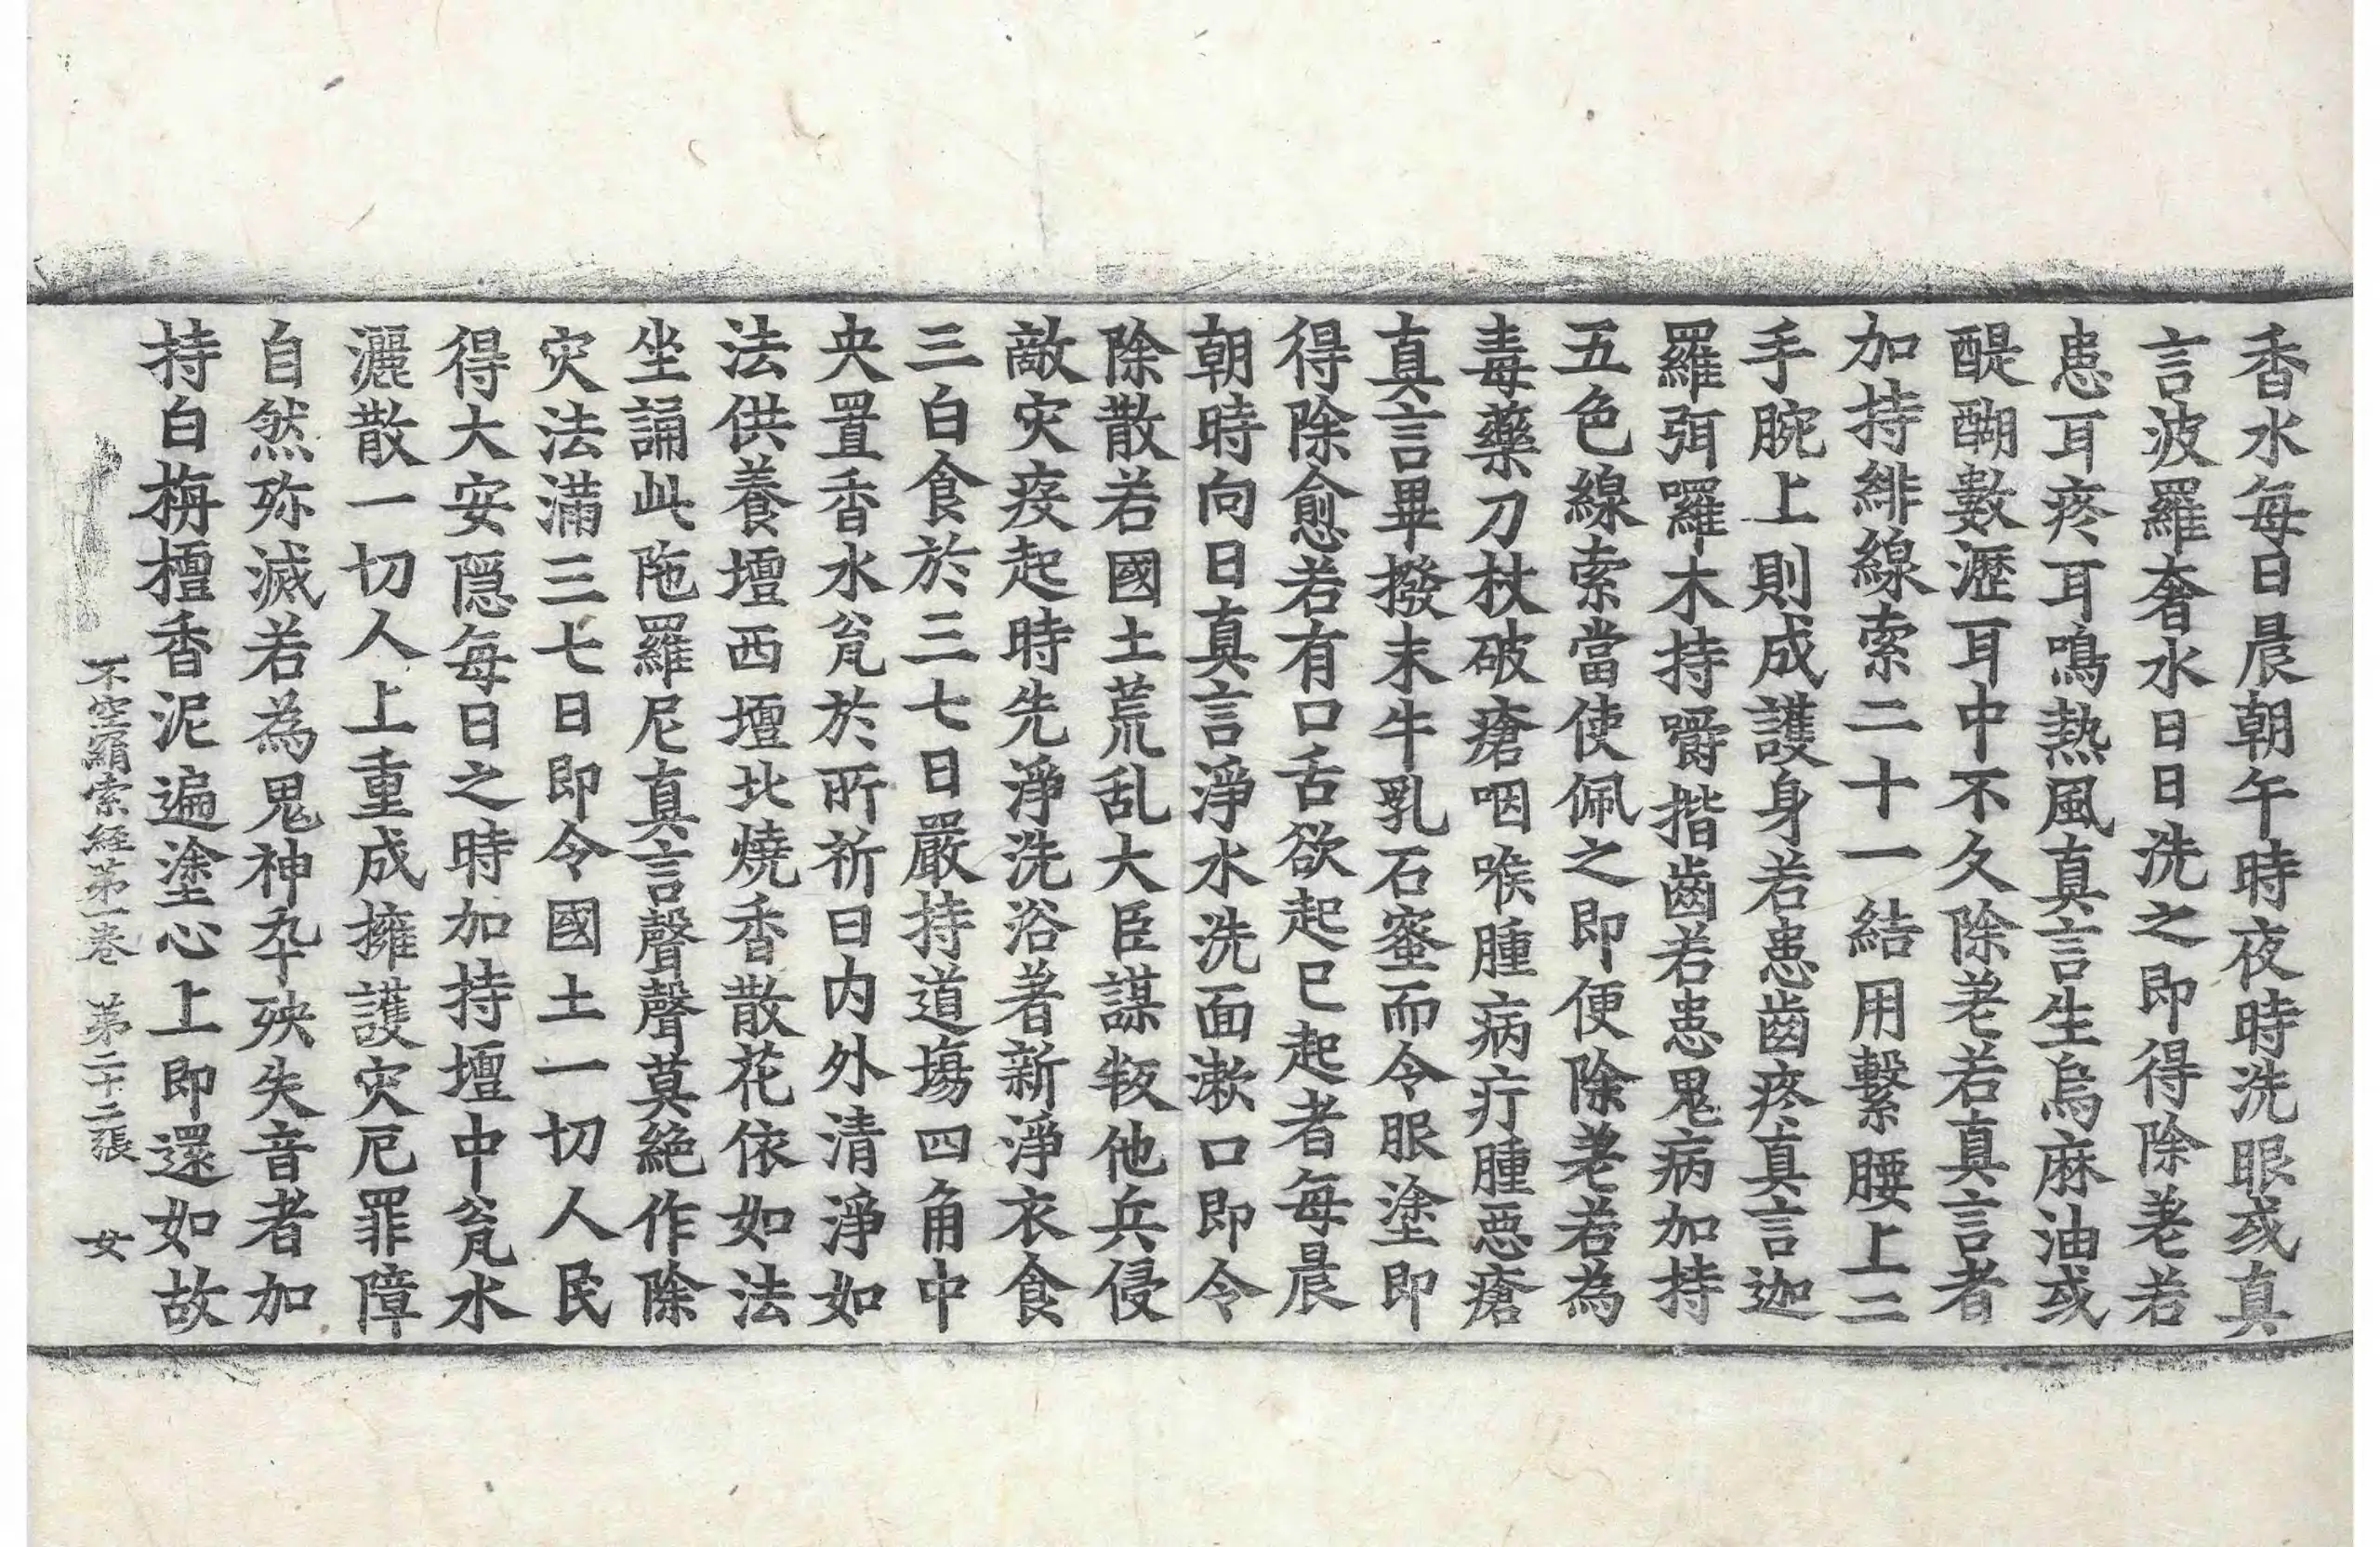 香水每日晨朝午時夜時洗眼或真
言波羅奢水日日洗之即得除老若
患耳疼耳鳴熱風真言生烏麻油或
醍醐數瀝耳中不久除老若真言者
加持緋線索二十一結用繫腰上二
手腕上則成護身若患齒疼真言迦
羅弭囉木持嚼揩齒若患鬼病加持
五色線索當使佩之即便除老若為
毒藥刀杖破瘡咽喉腫病疔腫惡瘡
真言畢撥末牛乳石蜜而令服塗即
得除愈若有口舌欲起已起者每晨
朝時向日真言淨水洗面漱口即令
除散若國土荒乱大臣謀叛他兵侵
敵灾疫起時先淨洗浴著新淨衣食
三白食於三七日嚴持道場四角中
央置香水瓮於所祈日內外清淨如
法供養壇西壇北燒香散花依如法
坐誦此陁羅尼真言聲聲莫絕作除
灾法滿三七日即令國土一切人民
得大安隱每日之時加持壇中瓮水
灑散一切人上重成擁護灾厄罪障
自然弥滅若為鬼神卒殃失音者加
持白栴檀香泥遍塗心上即還如故
不空羂索経第一巻 第二十二張 女